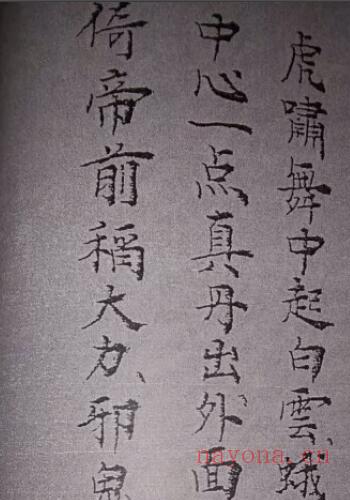 虎嘯舞中起白雲、蛾
中心一点真丹出外面
倚帝前稱大力、邪鬼
nayona.cn